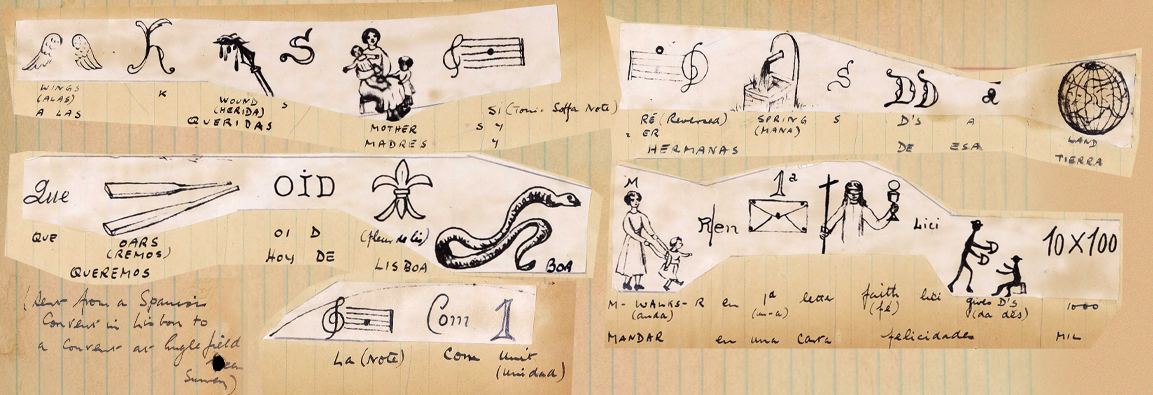 K S
WINGS K WOUND S
(ALAS) (HERIDA) MOTHER SI (Tonic Solfa Note)
A LAS QUERIDAS MADRES S Y
Y
S DD á
RÉ (Reversed) SPRING S D'S A LAND
= ER (MANA)
HERMANAS DE ESA TIERRA
Que OiD
QUE OARS OI D (fleur de lis) BOA
(REMOS) HOY DE LISBOA
QUEREMOS
M R/en 1ª Lici 10X100
M- WALKS-R en 1ª letter faith lici gives D'S 1000
(anda) (un-a) (fé) (da des)
MANDAR en una Carta felicidades MIL
(Sent from a Spanish
Convent in Lisbon to
a Convent at Englefield
Green
Surrey)
Com 1
La (Note) Com Unit
(unidad)